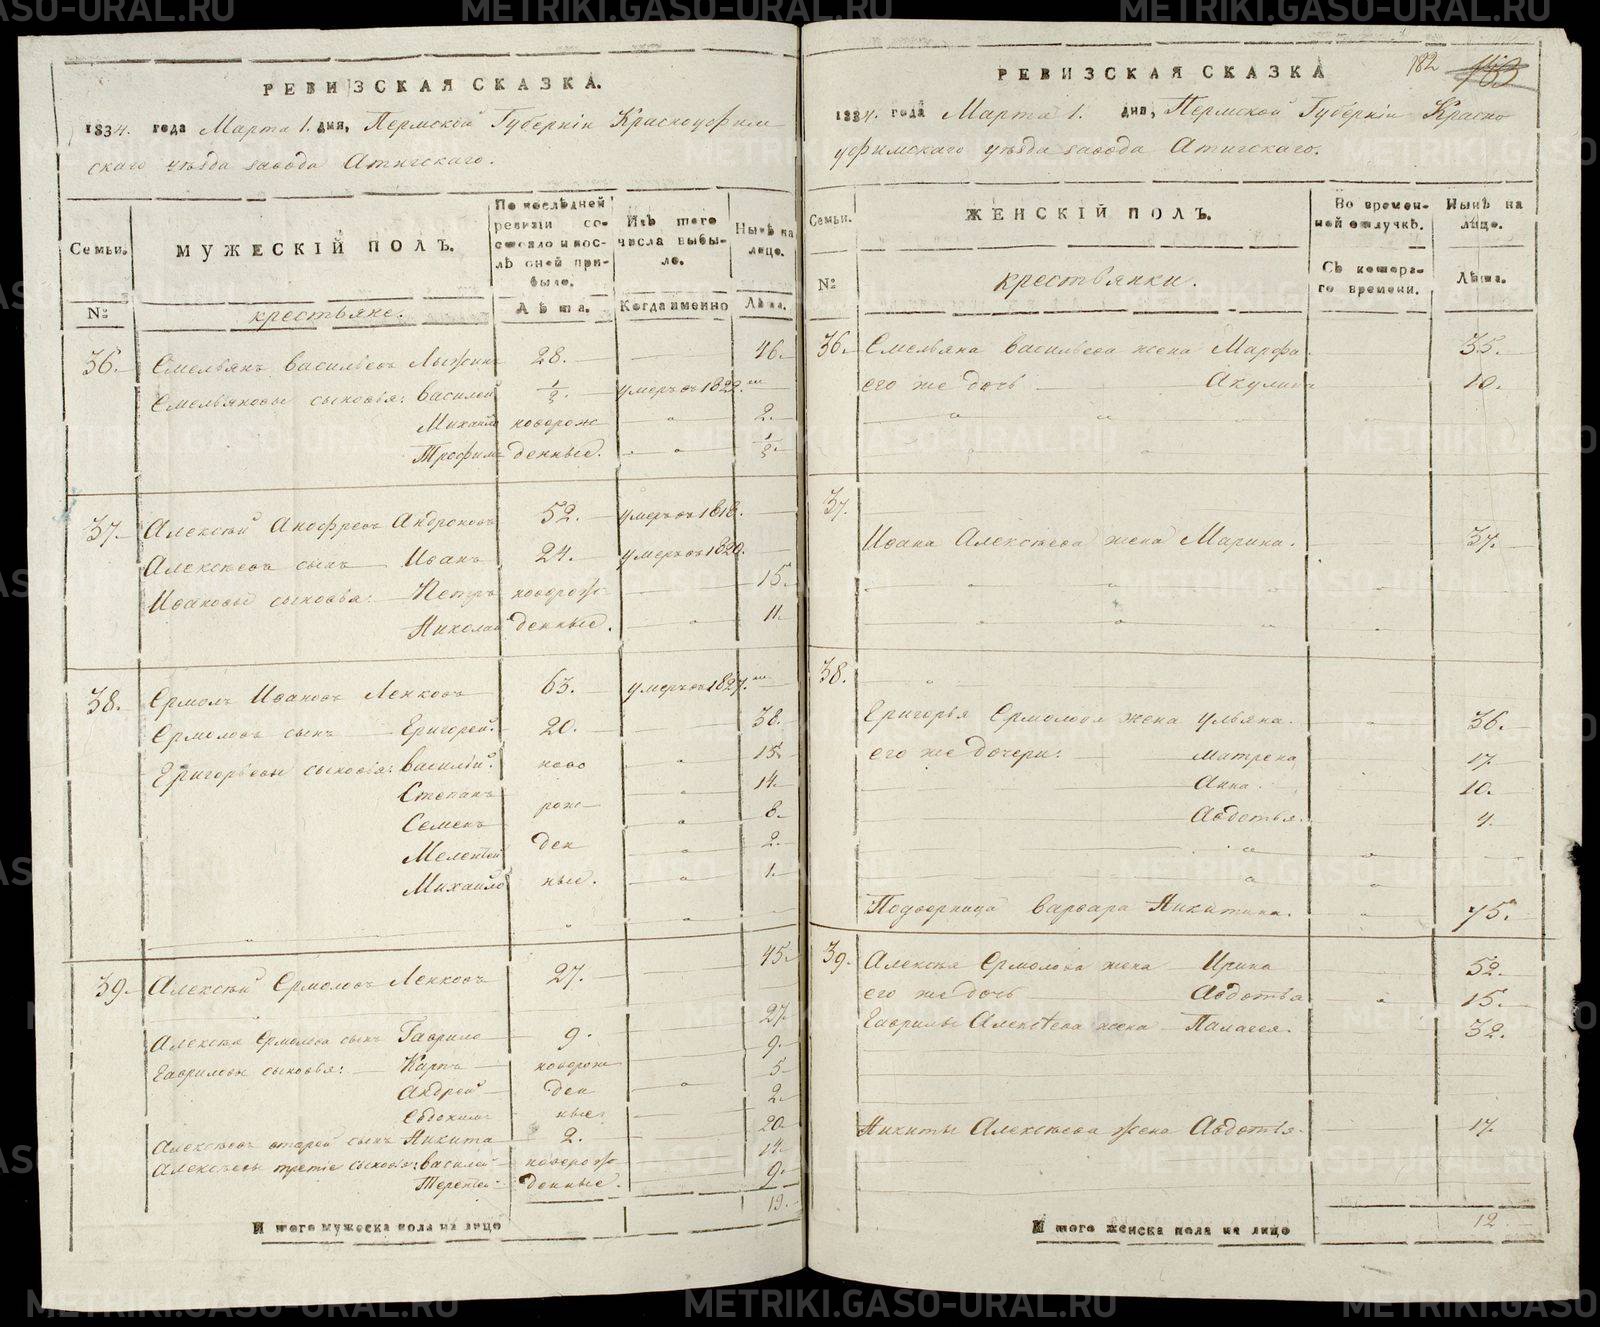 РЕВИЗСКАЯ СКАЗКА.
1834. года Марта 1. дня, Пермской Губерніи Красноуфим
скаго уѣзда завода Атигскаго.
Семьи.
МУЖЕСКІЙ ПОЛЪ.
По послѣдней ревизіи состояло и послѣ оней прибыло.
Изъ того числа выбыло.
Нынѣ на лицо.
№
крестьяне.
Лѣта.
Когда именно
Лѣта.
36. Емельянъ Васильевъ 28. 46.
Емельяновы сыновья: Василей 1/2. умеръ въ 1822.мъ
Михайло новорож 2.
Трофимъ денные. 1/2.
37. Алексѣй Анофреевъ Андроновъ 52. умеръ въ 1818.
Алексѣевъ сынъ Иванъ 24. умеръ въ 1820.
Ивановы сыновья: Петръ новорож 15.
Николай денные. 11.
38. Ермолъ Ивановъ Ленковъ 63. умеръ въ 1827.мъ
Ермоловъ сынъ Григорей. 20. 38.
Григорьевы сыновья: Василій. ново 15.
Степанъ рож 14.
Семенъ 8.
Мелентей ден 2.
Михайло ные. 1.
39. Алексѣй Ермоловъ Ленковъ 27. 45.
Алексѣя Ермолова сынъ Гаврило 9. 27.
Гавриловы сыновья: Карпъ новорож 9.
Андрей ден 5
Евдокимъ ные. 2.
Алексѣевъ вторей сынъ Никита 2. 20
Алексѣевы третіе сыновья: Василей новорож 14.
Терентей денные. 9.
И того мужеска пола на лицо 19.
182 183
РЕВИЗСКАЯ СКАЗКА
1834. года Марта 1. дня, Пермской Губерніи Красно
уфимскаго уѣзда завода Атигскаго.
Семьи.
ЖЕНСКІЙ ПОЛЪ.
Во временной отлучкѣ.
Нынѣ на лицо.
№
крестьянки.
Съ котораго времени.
Лѣта.
36. Емельяна Васильева жена Марфа. 35.
его же дочь Акулина 10.
37.
Ивана Алексѣева жена Марина. 37.
38.
Григорья Ермолова жена Ульяна. 36.
его же дочери: Матрена 17.
Анна. 10.
Авдотья. 4.
Подворница Варвара Никитина. 75.
39. Алексѣя Ермолова жена Ирина 52.
его же дочь Авдотья 15.
Гаврилы Алексѣева жена Палагея. 32.
Никиты Алексѣева жена Авдотья. 17.
И того женска пола на лицо 12
METRIKI.GASO-URAL.RU